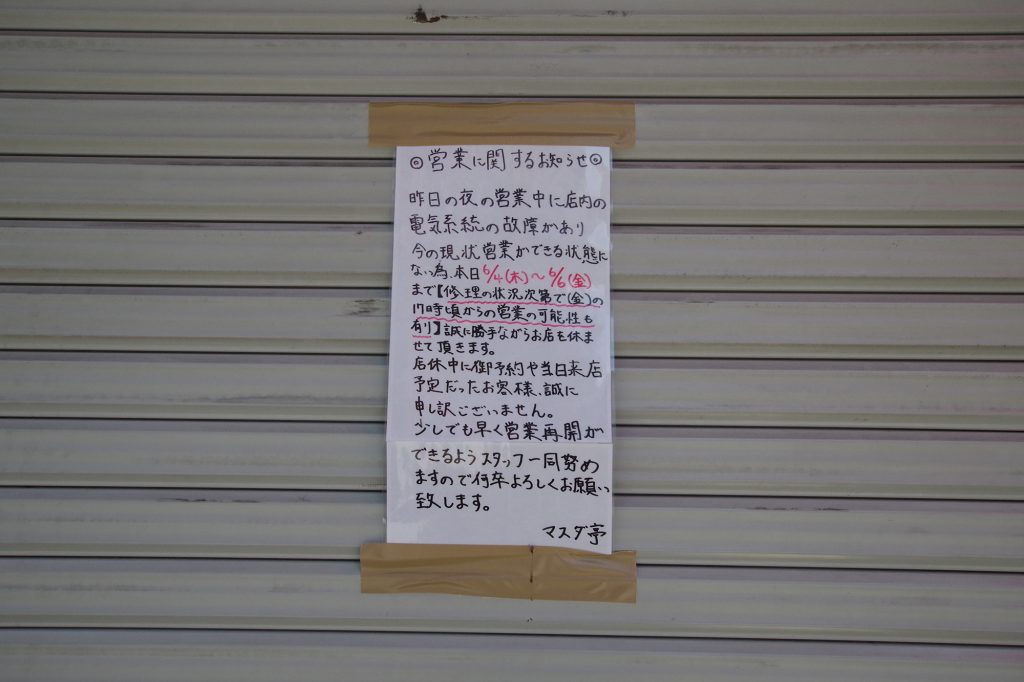 ◎営業に関するお知らせ◎
昨日の夜の営業中に店内の
電気系統の故障があり
今の現状営業ができる状態に
なっ為、本日6/4(木)〜6/6(金)
まで【修理の状況次第で(金)の
17時頃からの営業の可能性も
有り】誠に勝手ながらお店を休ま
せて頂きます。
店休中に御予約や当日来店
予定だったお客様、誠に
申し訳ございません。
少しでも早く営業再開が
できるようスタッフ一同努め
ますので何卒よろしくお願い
致します。
マスダ亭